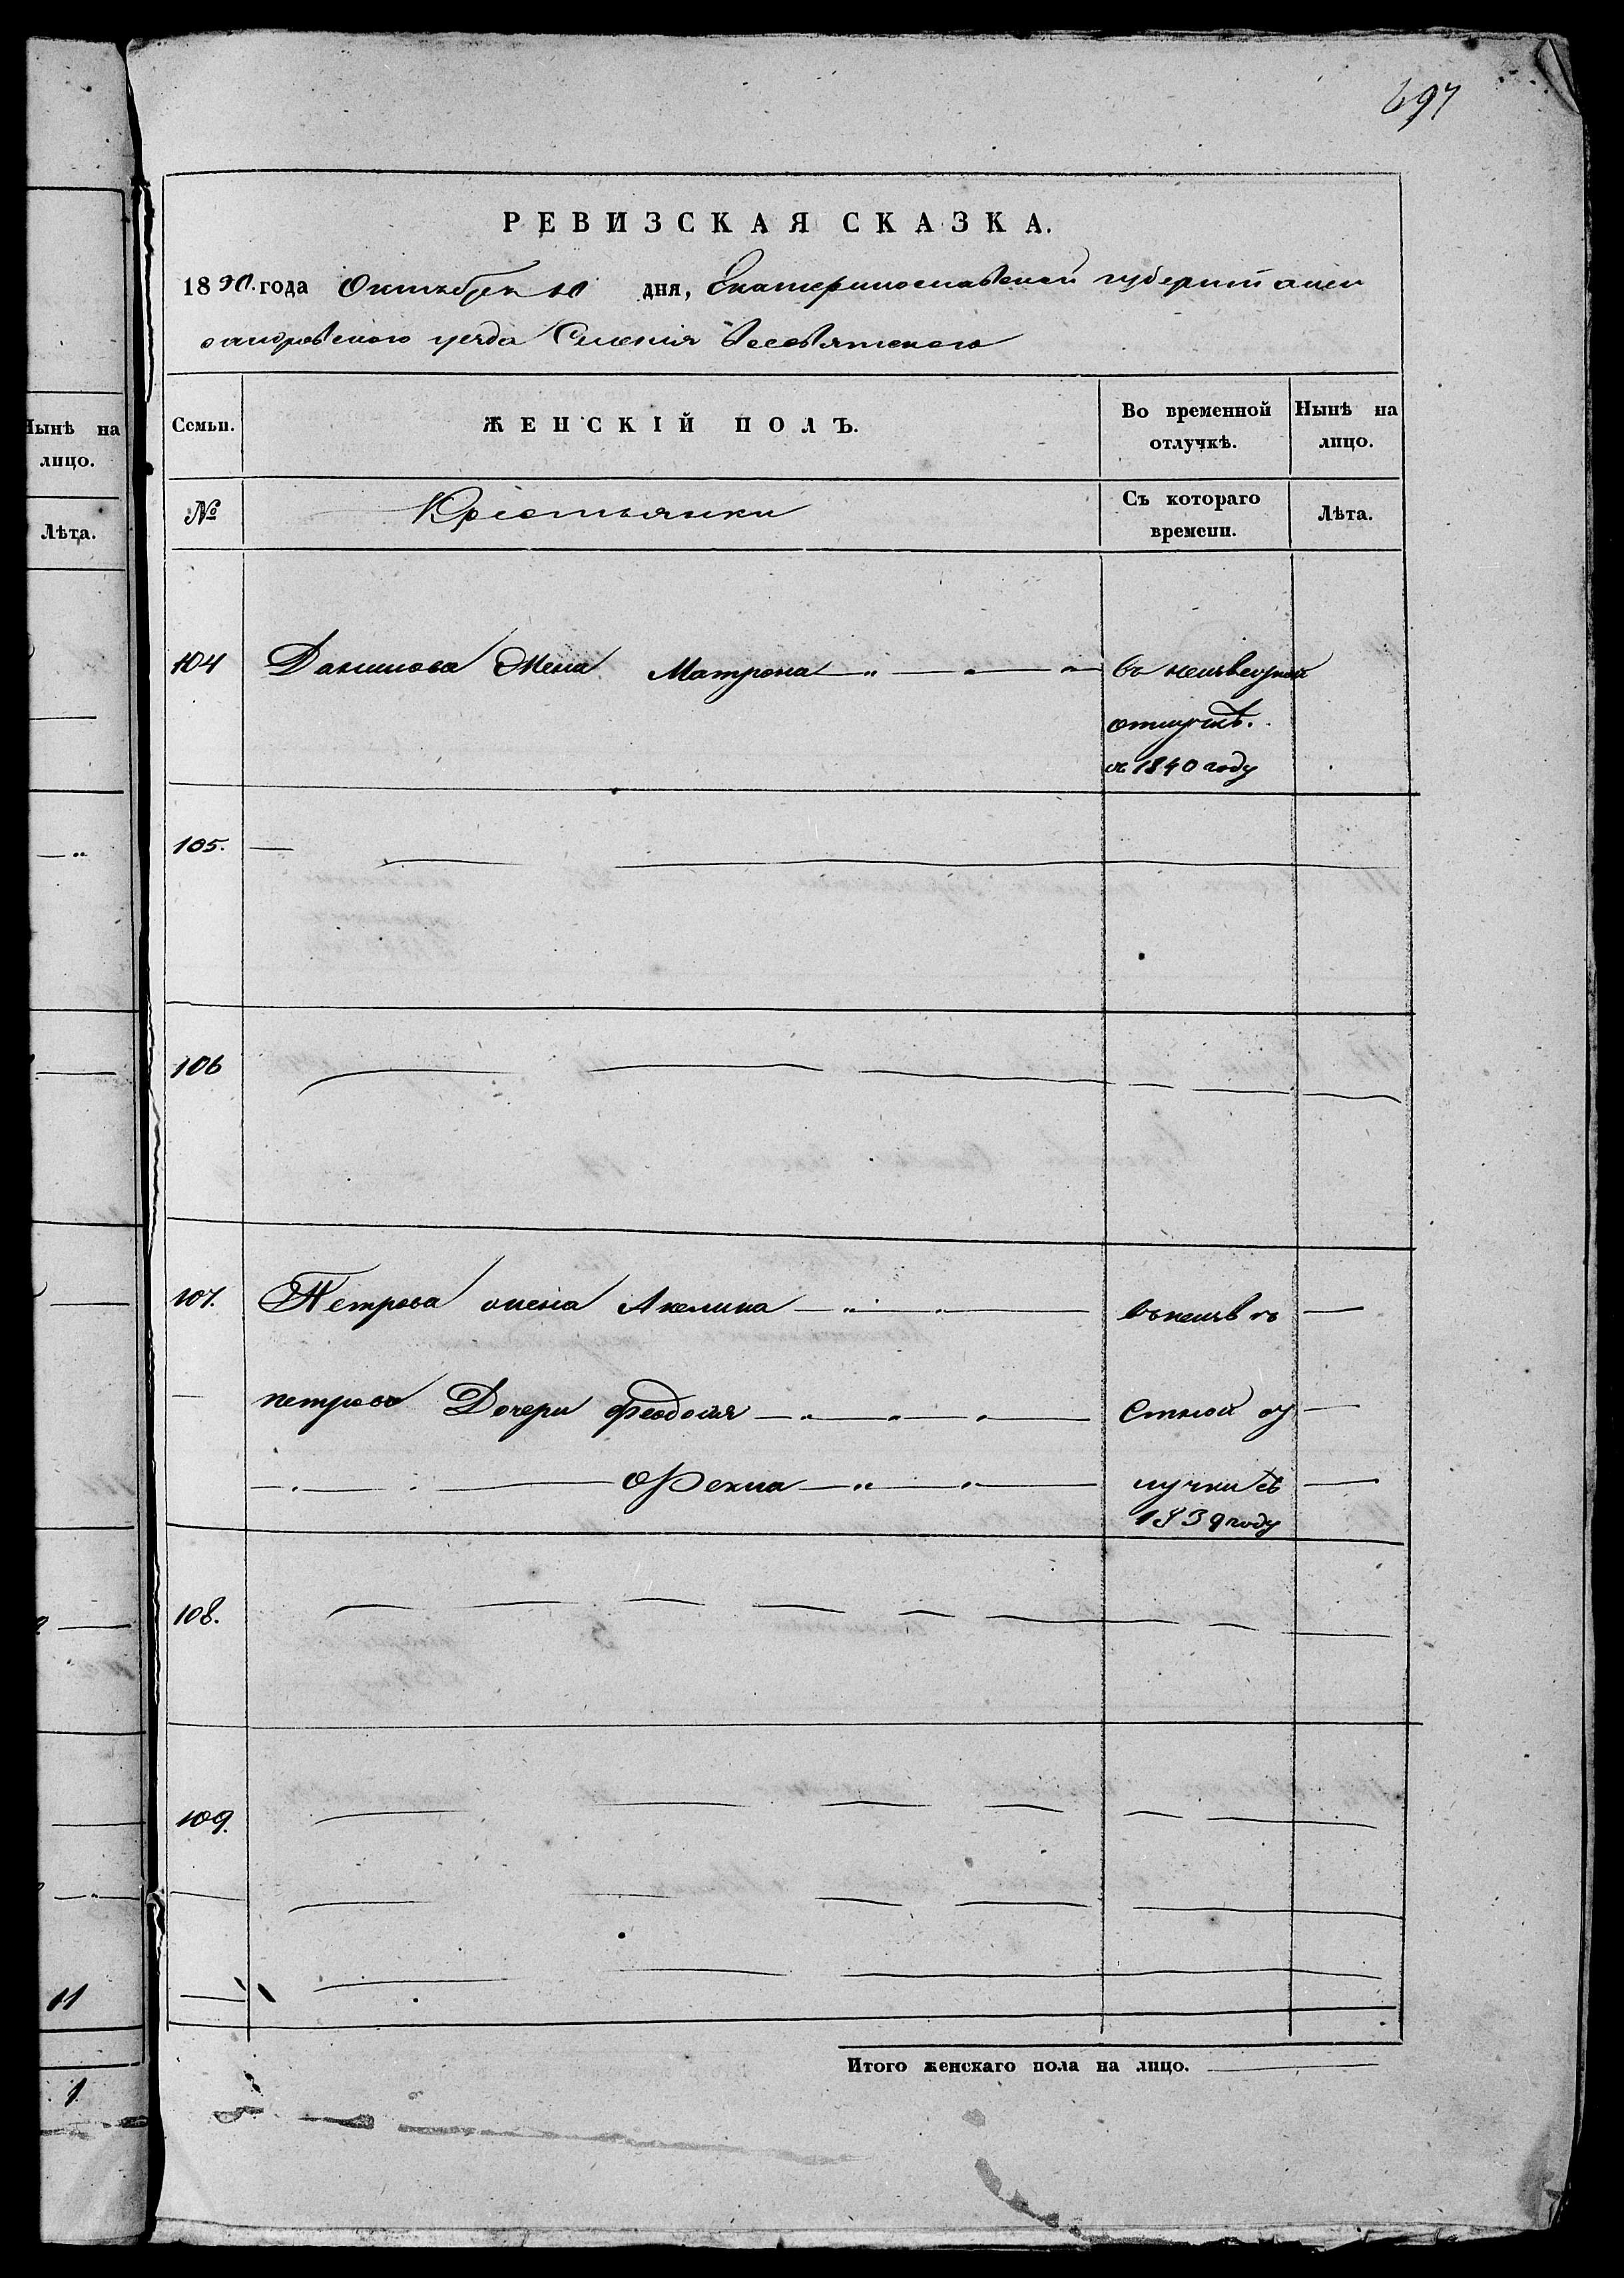 697
РЕВИЗСКАЯ СКАЗКА.
1850. года Октября 10 дня, Екатеринославской губерніи алек
сандровского уезда Селенія Всесвятского
Семьи.
ЖЕНСКІЙ ПОЛЪ.
Во временной отлучкѣ.
Нынѣ на лицо.
№
Крестьянки
Съ котораго времени.
Лѣта.
104 Данилова Жена Матрона
въ неизвестной
отлучкѣ.
съ 1840 году
105.
106
107. Петрова жена Акелина въ неизве
петрова Дочери Феодосия стной от
Фекла лучки съ
1839 году
108.
109.
Итого женскаго пола на лицо.
Нынѣ на
лицо.
Лѣта.
11
1